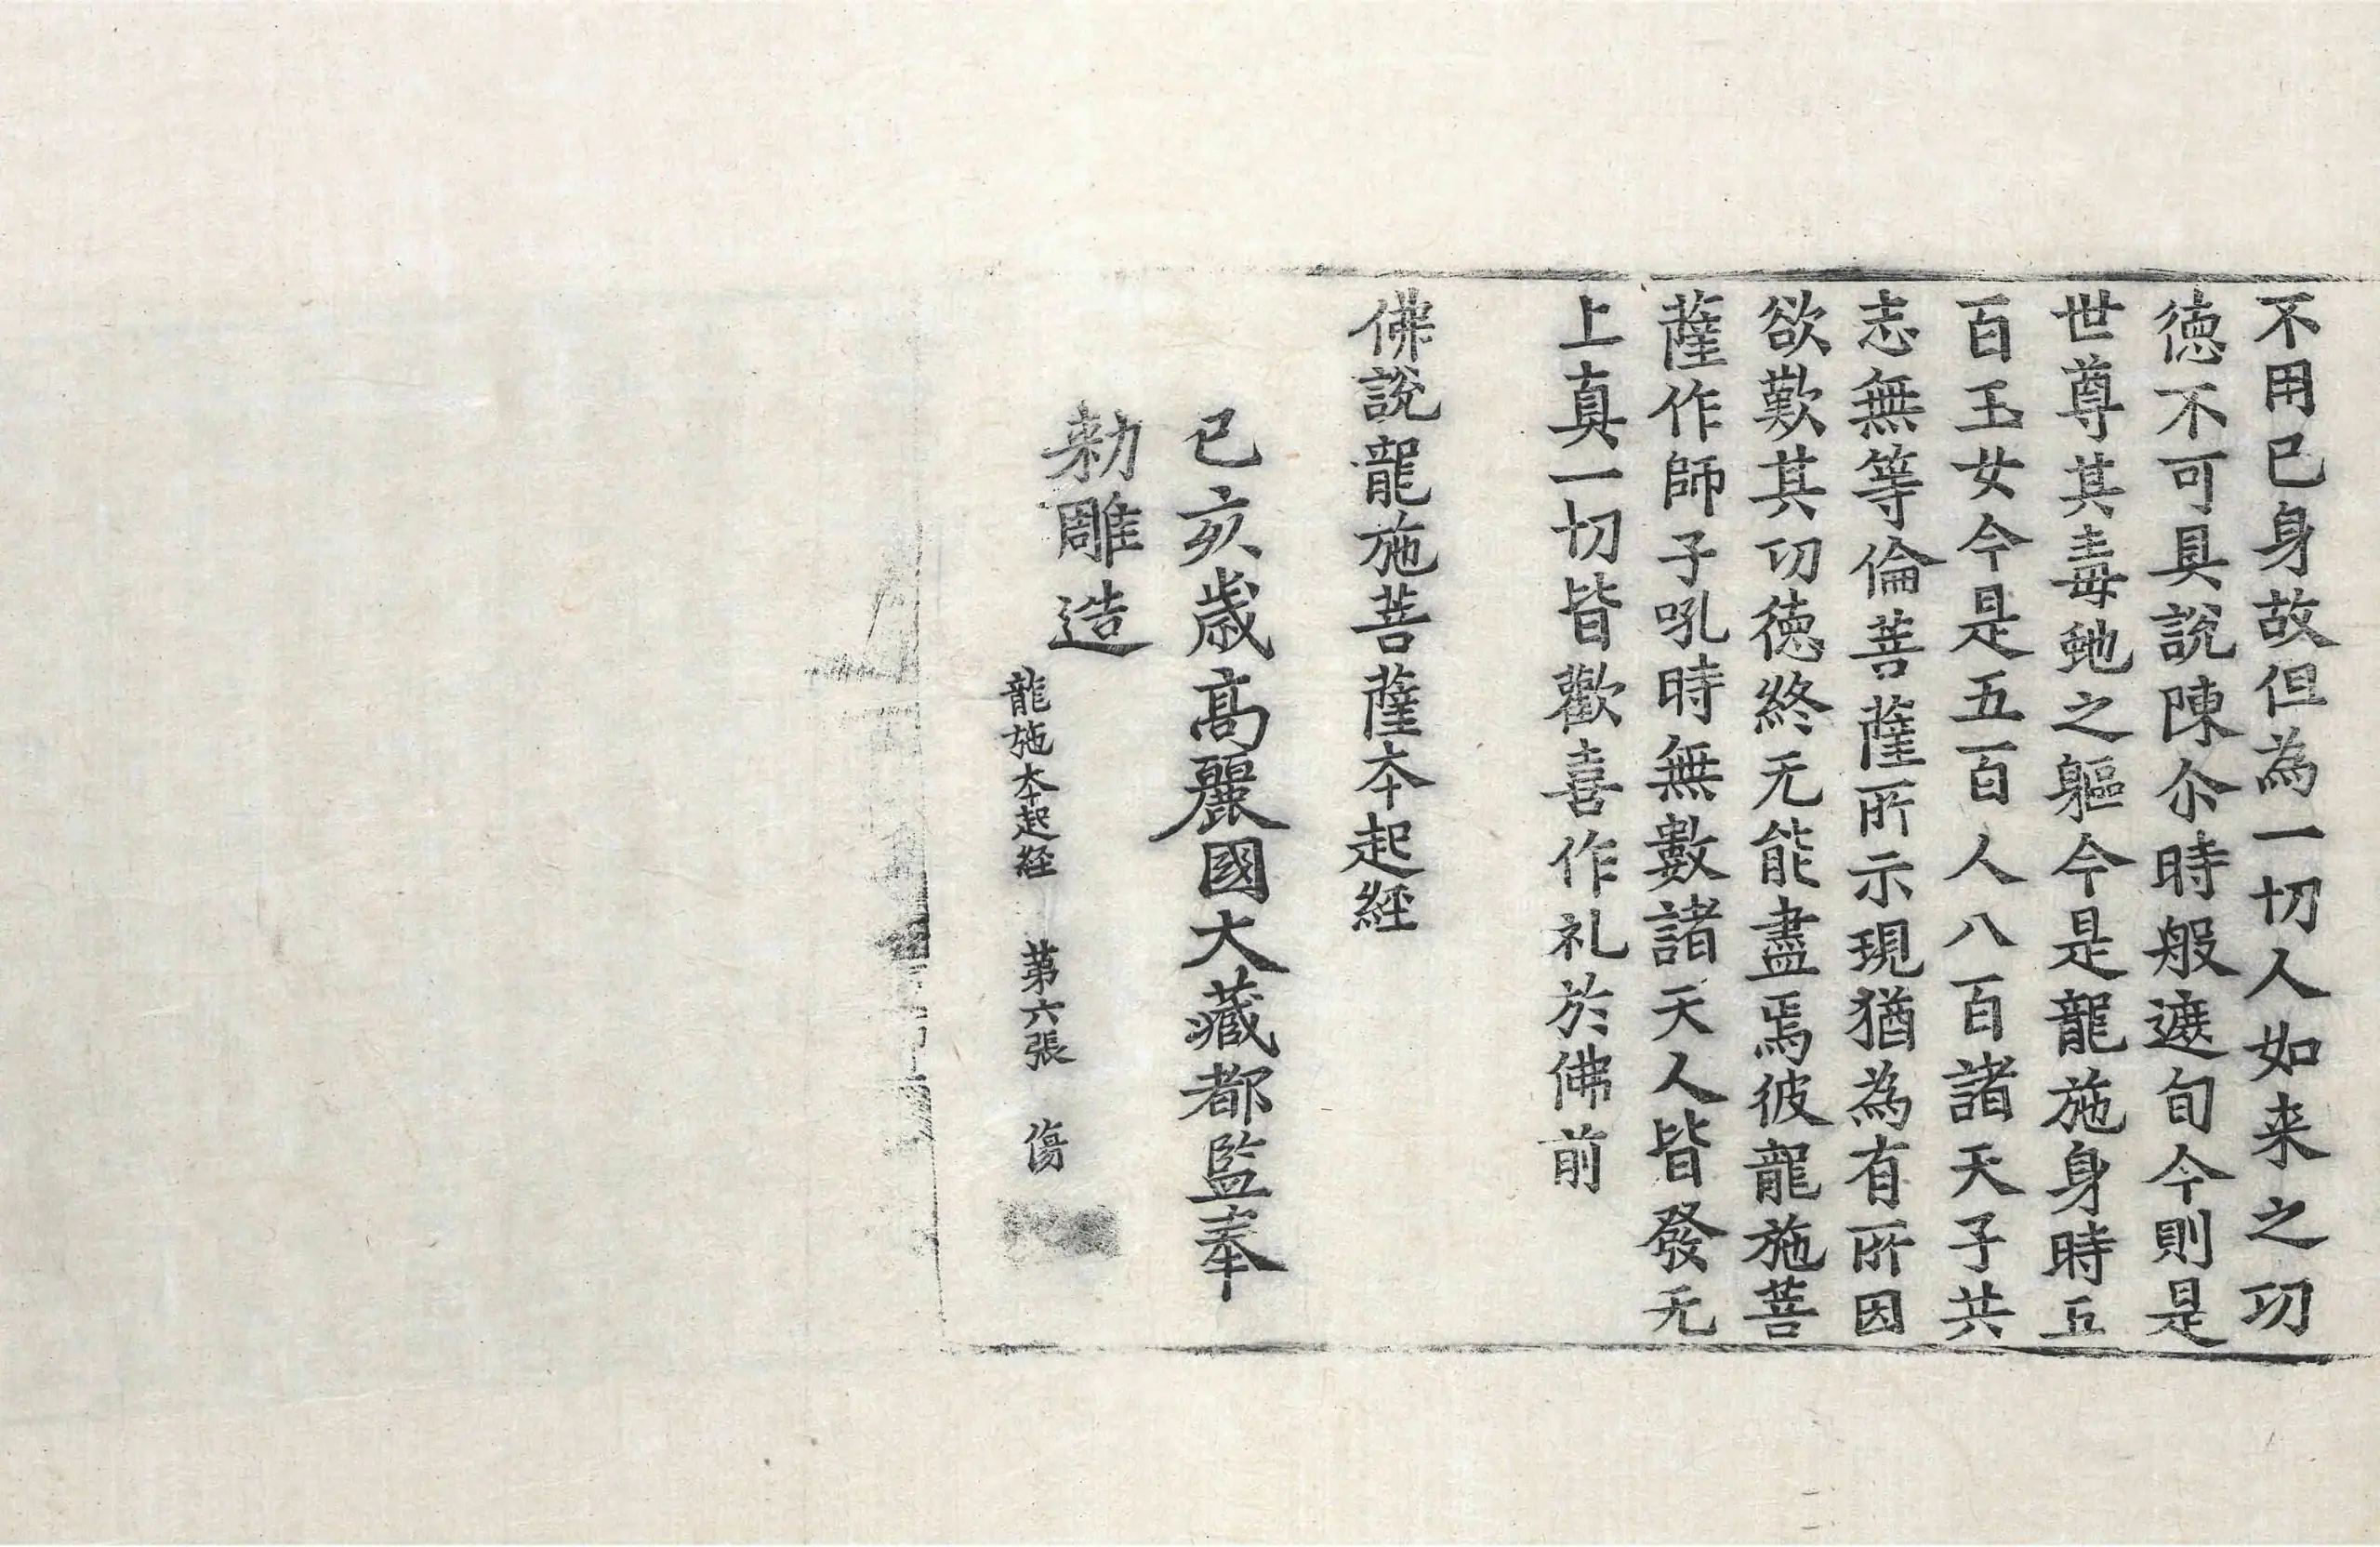 不用已身故但為一切人如来之功
徳不可具說陳尒時般遮旬今則是
世尊其毒虵之軀今是龍施身時五
百玉女今是五百人八百諸天子共
志無等倫菩薩所示現猶為有所因
欲歎其功徳終无能盡焉彼龍施菩
薩作師子吼時無數諸天人皆發无
上真一切皆歡喜作礼於佛前
佛說龍施菩薩夲起經
己亥歳高麗國大藏都監奉
勑雕造
龍施夲起経 第六張 傷